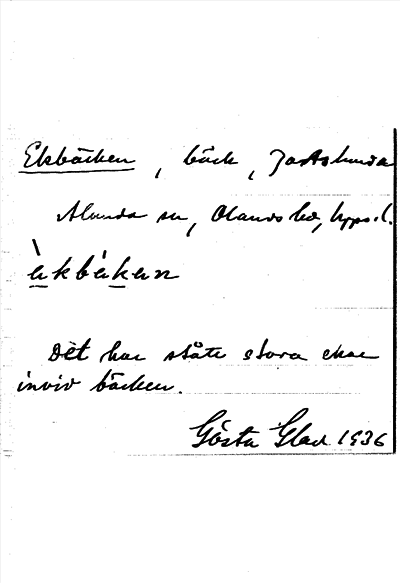 Eksbäcken, bäck,
Alunda sn, Olands hd, Upps. l.
ekbäken
Det har stått stora ekar
invid bäcken.
Gösta Glad 1936